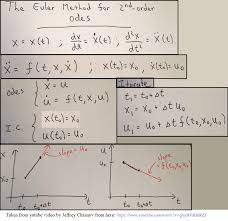 The Euler Method for 2nd-order
odes
x = x(t) ; dx/dt = ẋ(t) ; d²x/dt² = ẍ(t)
ẍ = f(t, x, ẋ) ; x(t₀) = x₀, ẋ(t₀) = u₀
odes { ẋ = u
u̇ = f(t, x, u)
I.C. { x(t₀) = x₀
u(t₀) = u₀
Iterate
t₁ = t₀ + Δt
x₁ = x₀ + Δt u₀
u₁ = u₀ + Δt f(t₀, x₀, u₀)
x
x₀
slope = u₀
t₀
t₀+Δt
t
u
u₀
slope
= f(t₀, x₀, u₀)
t₀
t₀+Δt
t
Taken from yutube video by Jeffrey Chasnov from here: